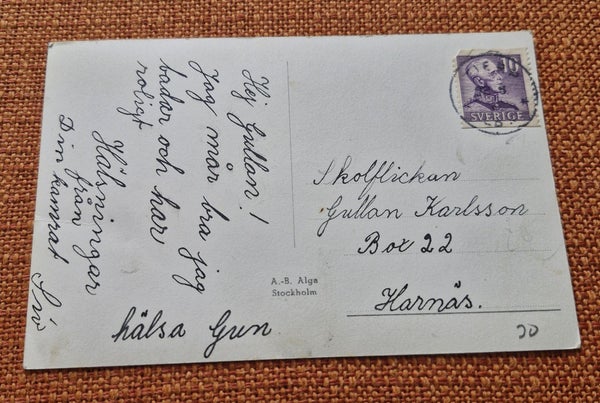 Hej Gullan!
Jag mår bra jag
badar och har
roligt
Hälsningar
från
Din kamrat Siv
hälsa Gun
A.-B. Alga
Stockholm
10
SVERIGE
Skolflickan
Gullan Karlsson
Box 22
Harnäs.
20